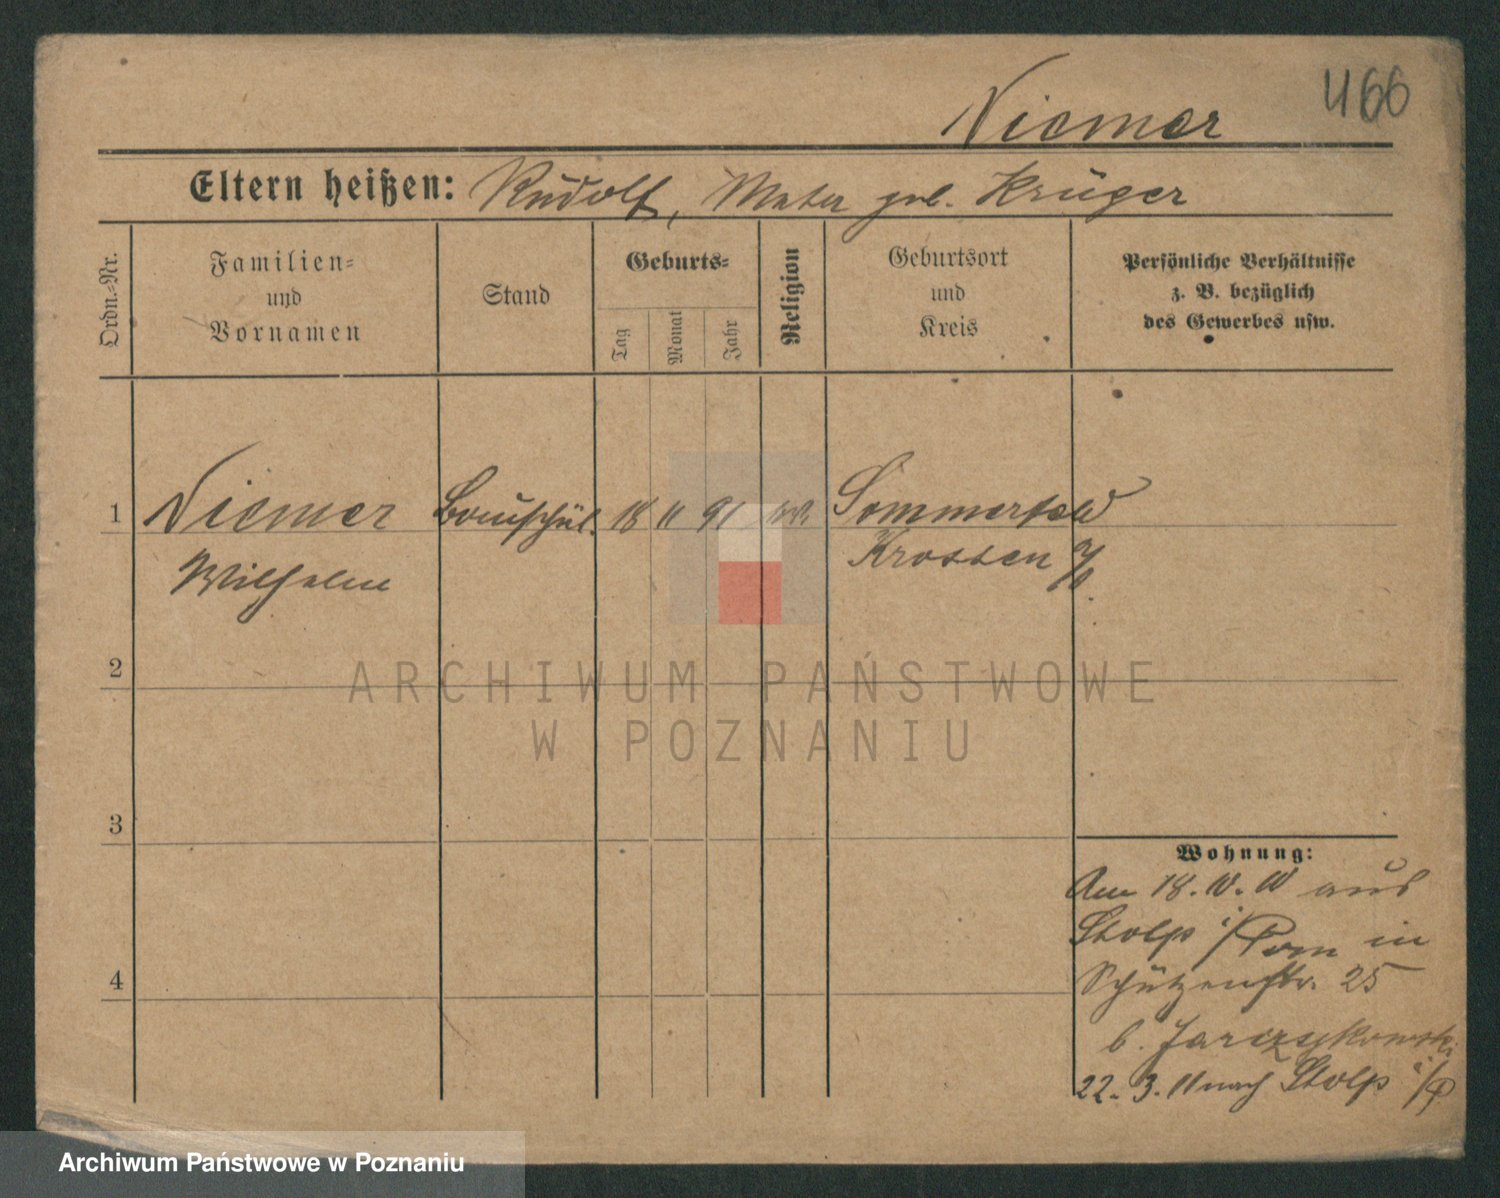 Niemer
466
Eltern heißen: Rudolf, Mutter geb. Krüger
Ordn.-Nr.
Familien-
und
Vornamen
Stand
Geburts-
Tag
Monat
Jahr
Religion
Geburtsort
und
Kreis
Persönliche Verhältnisse
z. B. bezüglich
des Gewerbes usw.
1 Niemer Bauschül. 18 11 91 Sommerfeld
Wilhelm Krossen a/O.
2
3
4
Wohnung:
Am 18. 10. 10 aus
Stolp i/Pom in
Schützenstr. 25
b. Jarczykowski
22. 3. 11 nach Stolp i/P
ARCHIWUM PAŃSTWOWE
W POZNANIU
Archiwum Państwowe w Poznaniu